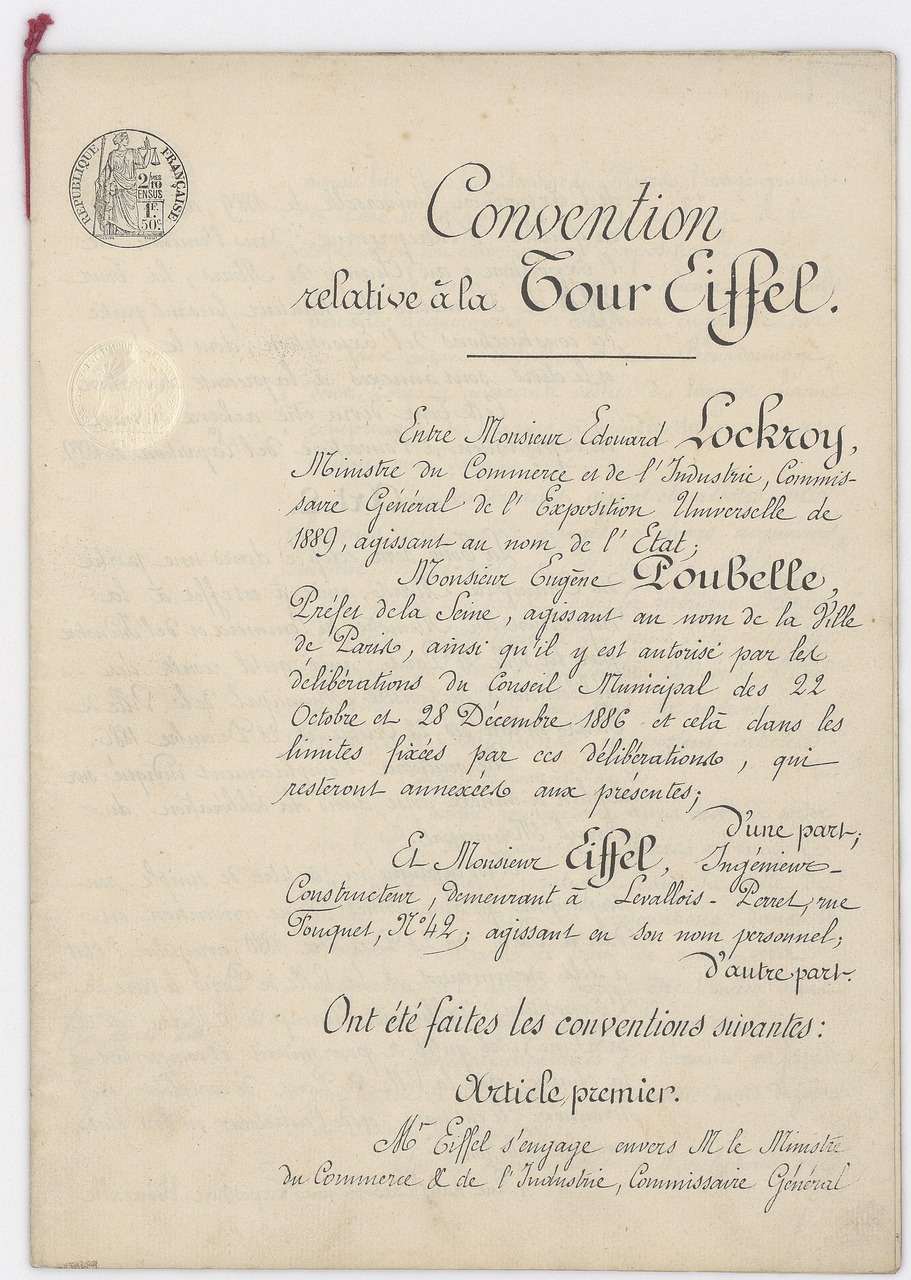 RÉPUBLIQUE FRANÇAISE
2/10
EN SUS
1F
50c
Convention
relative à la Tour Eiffel.
Entre Monsieur Edouard Lockroy,
Ministre du Commerce et de l'Industrie, Commis-
saire Général de l'Exposition Universelle de
1889, agissant au nom de l'Etat;
Monsieur Eugène Poubelle,
Préfet de la Seine, agissant au nom de la Ville
de Paris, ainsi qu'il y est autorisé par les
délibérations du Conseil Municipal des 22
Octobre et 28 Décembre 1886 et celà dans les
limites fixées par ces délibérations, qui
resteront annexées aux présentes;
d'une part;
Et Monsieur Eiffel, Ingénieur-
Constructeur, demeurant à Levallois-Perret, rue
Fouquet, N° 42; agissant en son nom personnel;
d'autre part.
Ont été faites les conventions suivantes:
Article premier.
Mr Eiffel s'engage envers M le Ministre
du Commerce & de l'Industrie, Commissaire Général